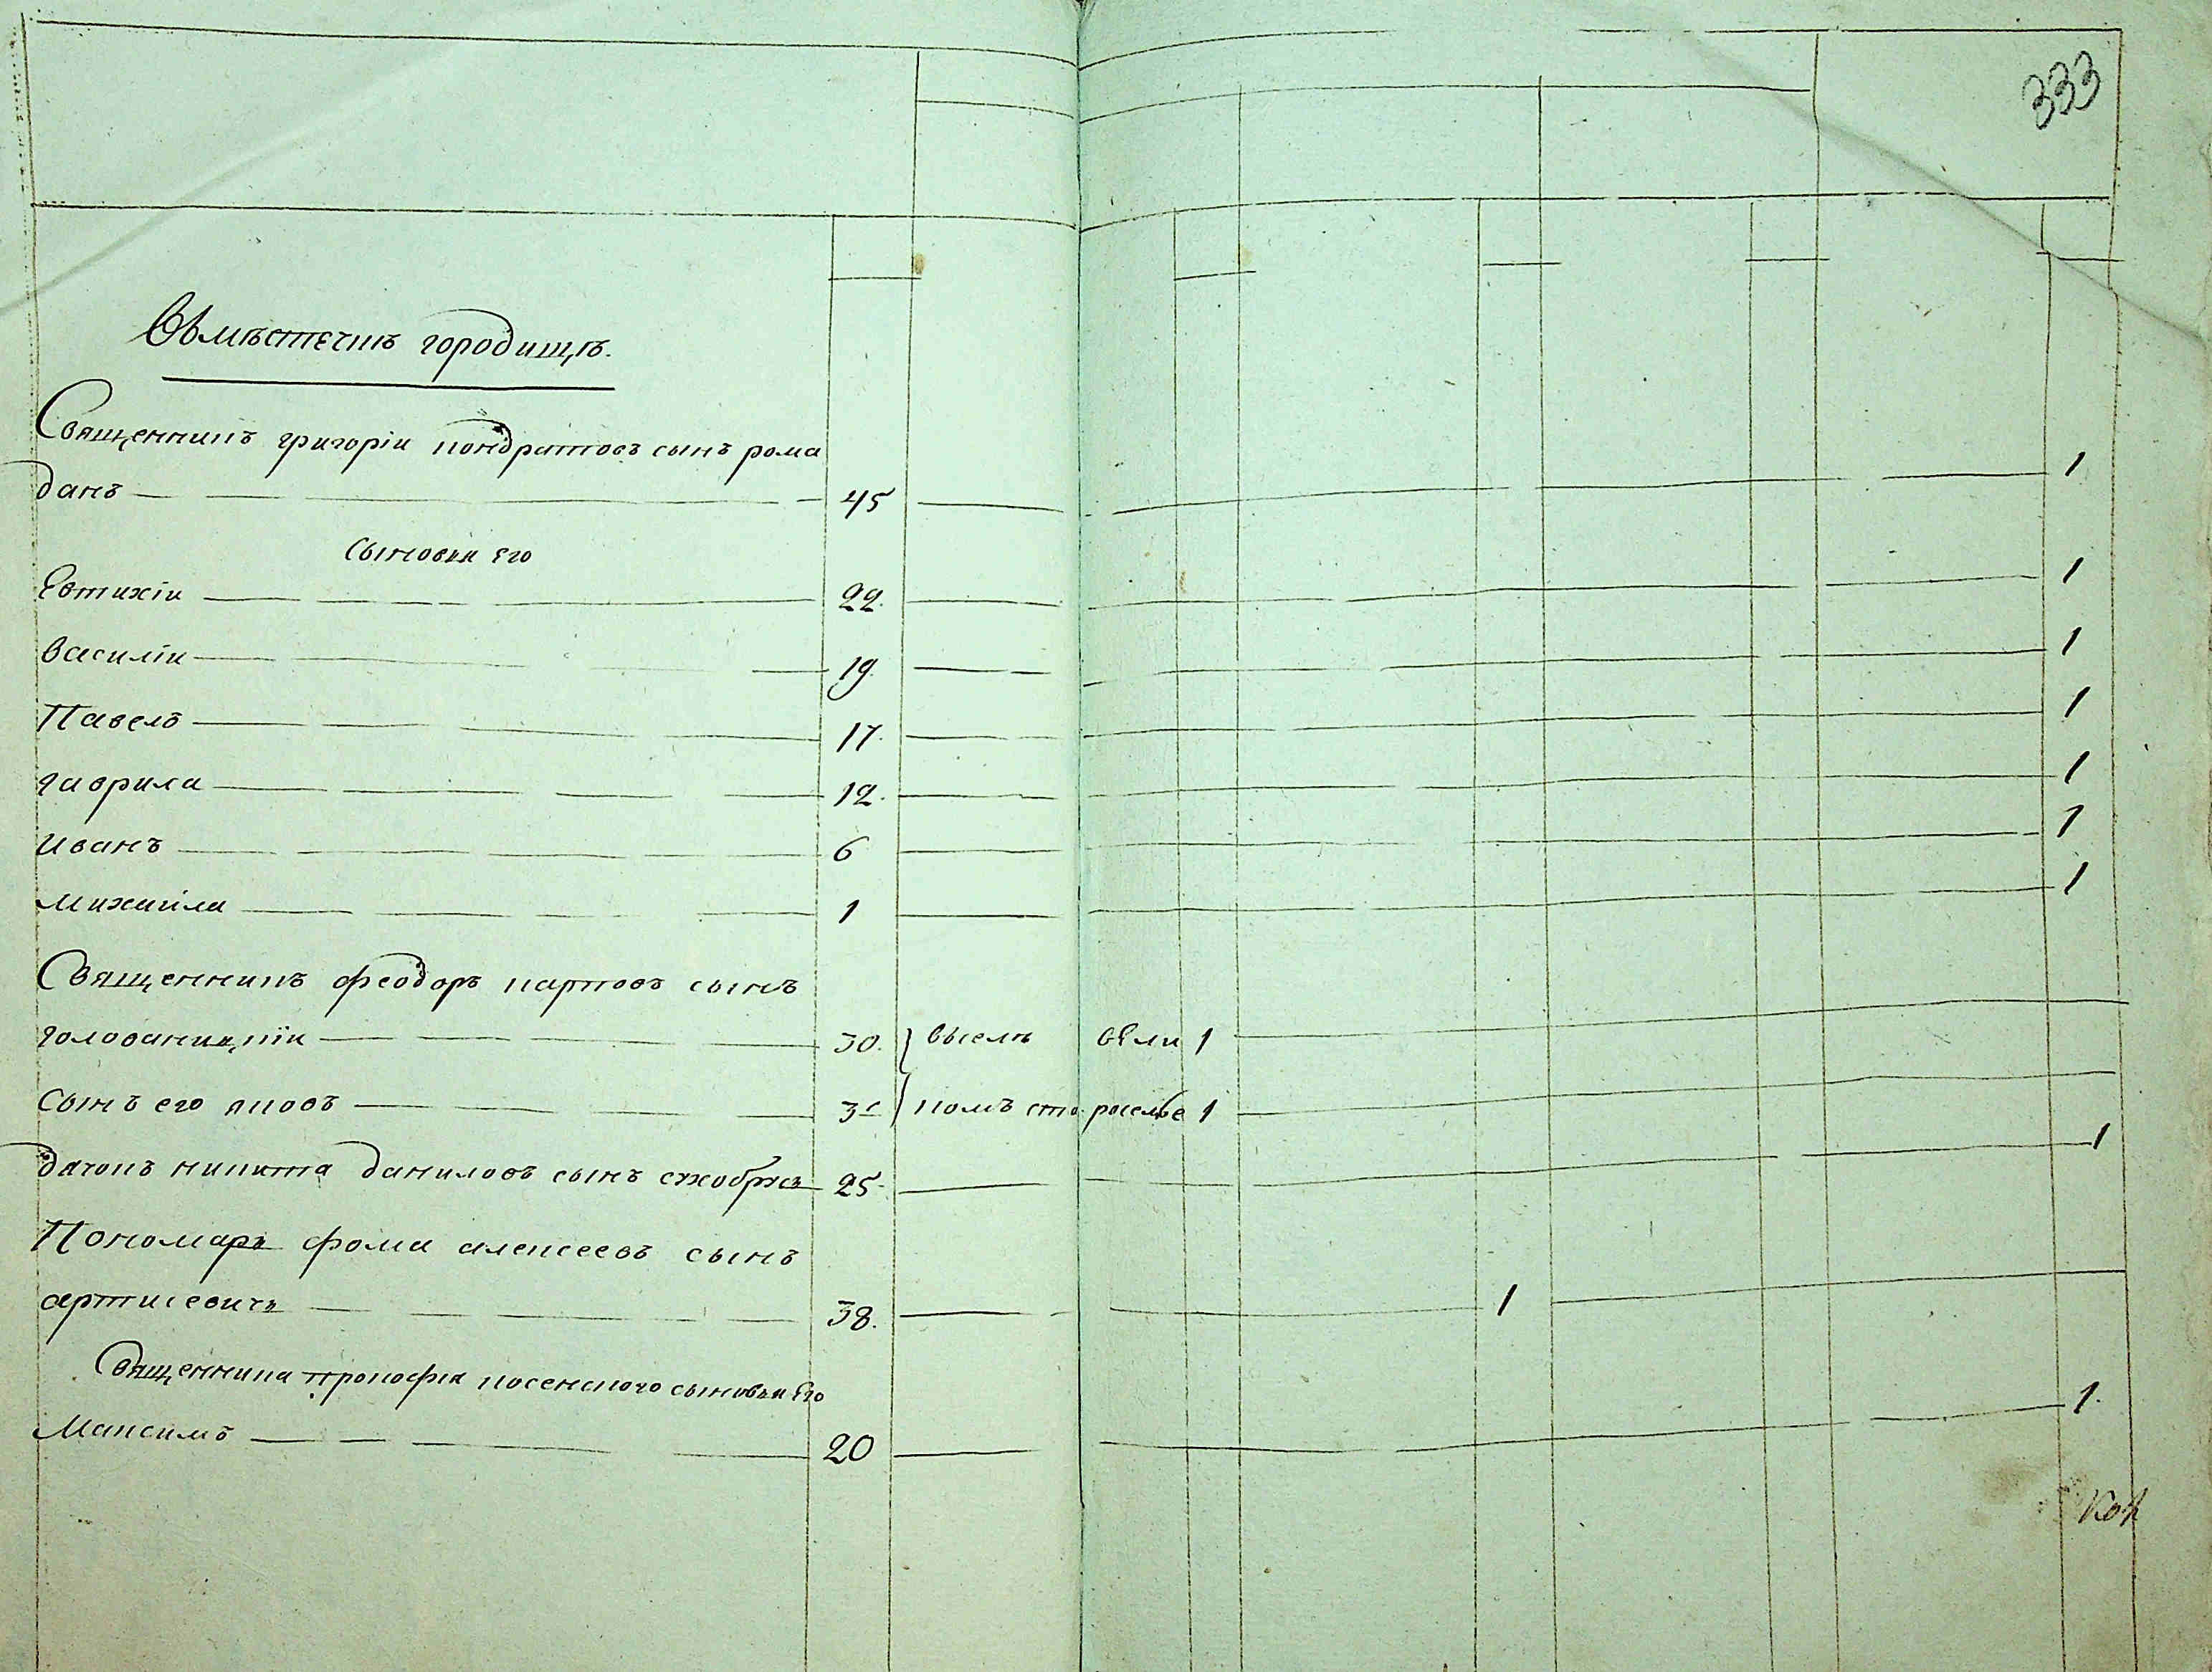 333
Вмѣстечкѣ городищѣ.
Священникъ григоріи кондратовъ сынъ рома
данъ 45 1
Сыновья его
Евтихіи 22. 1
Василіи 19. 1
Павелъ 17. 1
гаврила 12. 1
Иванъ 6 1
михаила 1 1
Священникъ феодоръ карповъ сынъ
голованицкіи 30. } вселѣ вели 1
Сынъ его яковъ 3 комъ старо сельѣ 1
дячокъ никита даниловъ сынъ 25 1
Пономарь фома алексеевъ сынъ
артисевичъ 38. 1
Священника прокофія косенского сыновья Его
Максимъ 20 1.